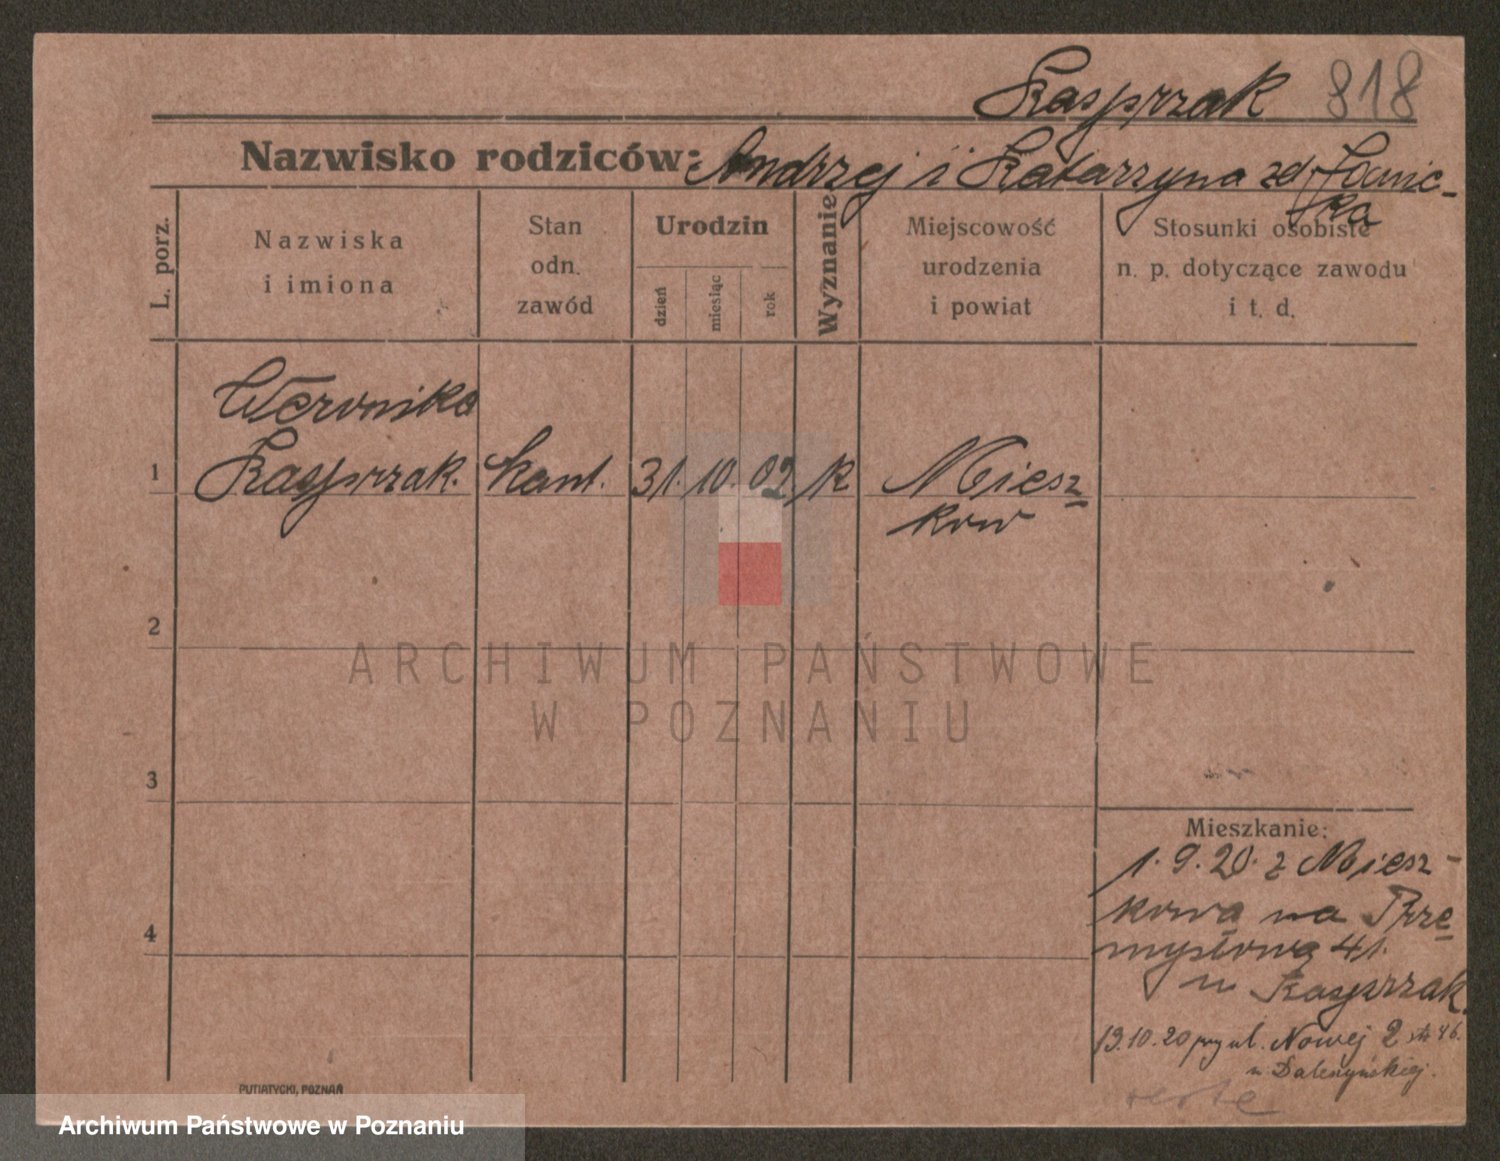 Kasprzak 818
Nazwisko rodziców: Andrzej i Katarzyna zd
ka
L. porz.
Nazwiska
i imiona
Stan
odn.
zawód
Urodzin
dzień
miesiąc
rok
Wyznanie
Miejscowość
urodzenia
i powiat
Stosunki osobiste
n. p. dotyczące zawodu
i t. d.
Weronika
1 Kasprzak. kont. 31. 10. 02 k Miesz-
kow
2
ARCHIWUM PAŃSTWOWE
W POZNANIU
3
Mieszkanie:
1. 9. 20. z Miesz-
kowa na Prze-
mysłową 41.
u Kasprzak.
4
19.10.20 przy ul. Nowej 2
u Daleszyńskiej.
PUTIATYCKI, POZNAŃ
Archiwum Państwowe w Poznaniu